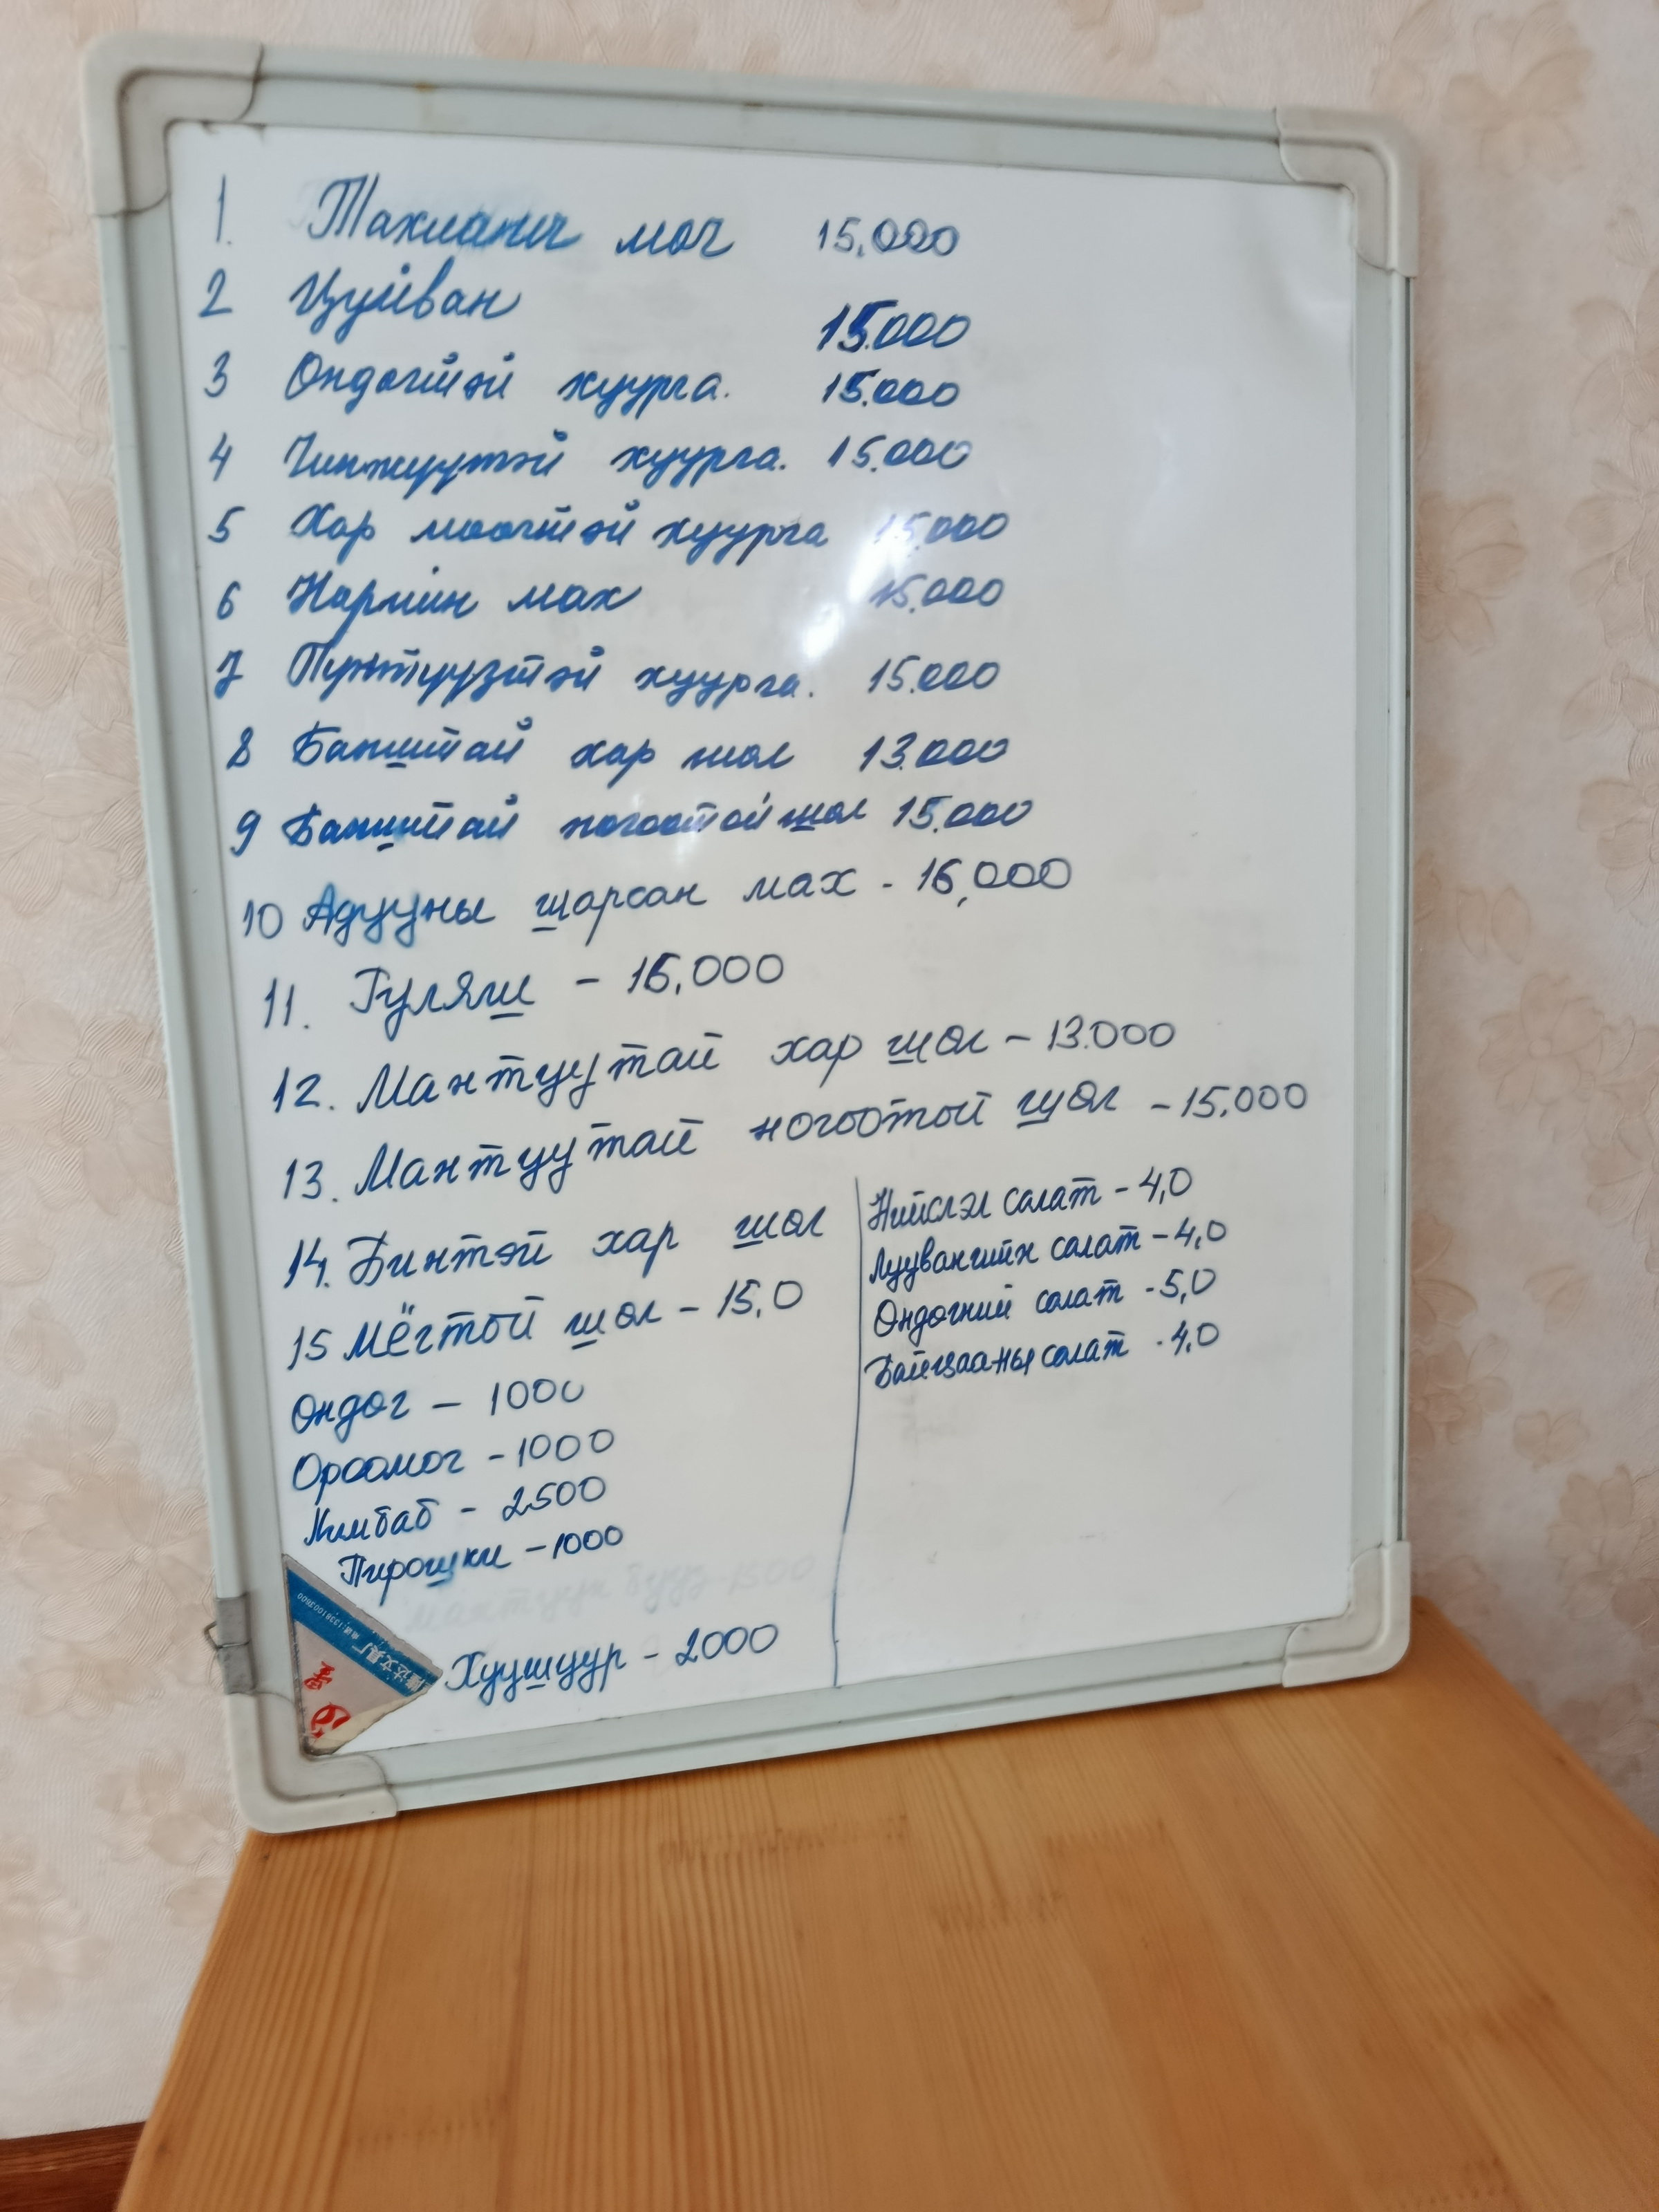 1. Тахианы моч 15,000
2 Цуйван 15.000
3 Ондогтэй хуурга. 15.000
4 Чинжуутэй хуурга. 15.000
5 Хар моогтэй хуурга 15.000
6 Нарийн мах 15.000
7 Пүнтүүзтэй хуурга. 15.000
8 Банштай хар шол 13.000
9 Банштай ногоотой шол 15.000
10 Адууны шарсан мах - 16,000
11. Гуляш - 16,000
12. Мантуутай хар шол - 13.000
13. Мантуутай ногоотой шол - 15.000
14. Бинтэй хар шол
15 Мёгтой шол - 15,0
Ондог - 1000
Ороомог - 1000
Кимбаб - 2500
Пирошки - 1000
Хуушуур - 2000
Нийслэл салат - 4,0
Луувангийн салат - 4,0
Ондогний салат - 5,0
Байцааны салат - 4,0